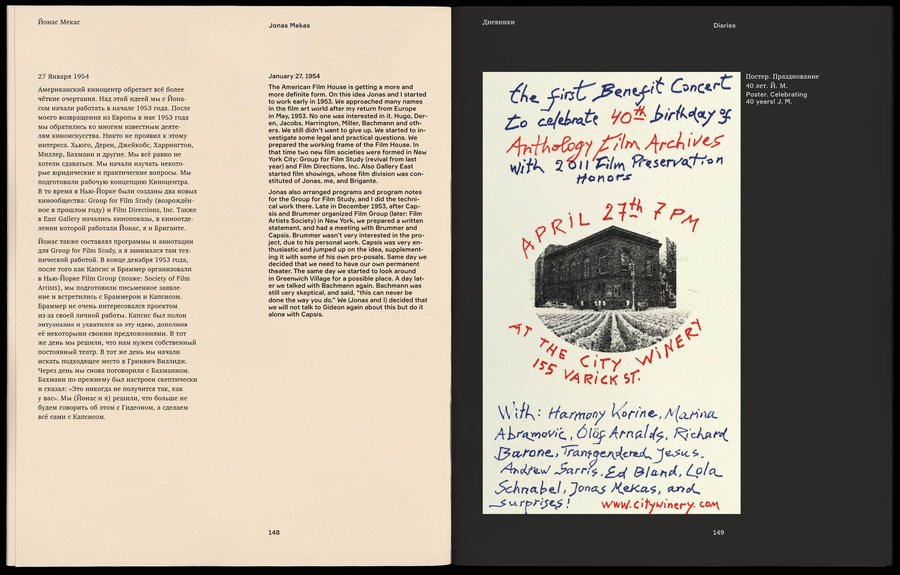 Йонас Мекас
Jonas Mekas
27 Января 1954
Американский киноцентр обретает всё более
чёткие очертания. Над этой идеей мы с Йона-
сом начали работать в начале 1953 года. После
моего возвращения из Европы в мае 1953 года
мы обратились ко многим известным деяте-
лям киноискусства. Никто не проявил к этому
интереса. Хьюго, Дерен, Джейкобс, Харрингтон,
Миллер, Бахманн и другие. Мы всё равно не
хотели сдаваться. Мы начали изучать некото-
рые юридические и практические вопросы. Мы
подготовили рабочую концепцию Киноцентра.
В то время в Нью-Йорке были созданы два новых
кинообщества: Group for Film Study (возрождён-
ное в прошлом году) и Film Directions, Inc. Также
в East Gallery начались кинопоказы, в киноотде-
лении которой работали Йонас, я и Бриганте.
Йонас также составлял программы и аннотации
для Group for Film Study, а я занимался там тех-
нической работой. В конце декабря 1953 года,
после того как Капсис и Браммер организовали
в Нью-Йорке Film Group (позже: Society of Film
Artists), мы подготовили письменное заявле-
ние и встретились с Браммером и Капсисом.
Браммер не очень интересовался проектом
из-за своей личной работы. Капсис был полон
энтузиазма и ухватился за эту идею, дополнив
её некоторыми своими предложениями. В тот
же день мы решили, что нам нужен собственный
постоянный театр. В тот же день мы начали
искать подходящее место в Гринвич-Виллидж.
Через день мы снова поговорили с Бахманном.
Бахманн по-прежнему был настроен скептически
и сказал: «Это никогда не получится так, как
у вас». Мы (Йонас и я) решили, что больше не
будем говорить об этом с Гидеоном, а сделаем
всё сами с Капсисом.
January 27, 1954
The American Film House is getting a more and
more definite form. On this idea Jonas and I started
to work early in 1953. We approached many names
in the film art world after my return from Europe
in May, 1953. No one was interested in it. Hugo, Der-
en, Jacobs, Harrington, Miller, Bachmann and oth-
ers. We still didn't want to give up. We started to in-
vestigate some legal and practical questions. We
prepared the working frame of the Film House. In
that time two new film societies were formed in New
York City: Group for Film Study (revival from last
year) and Film Directions, Inc. Also Gallery East
started film showings, whose film division was con-
stituted of Jonas, me, and Brigante.
Jonas also arranged programs and program notes
for the Group for Film Study, and I did the techni-
cal work there. Late in December 1953, after Cap-
sis and Brummer organized Film Group (later: Film
Artists Society) in New York, we prepared a written
statement, and had a meeting with Brummer and
Capsis. Brummer wasn't very interested in the pro-
ject, due to his personal work. Capsis was very en-
thusiastic and jumped up on the idea, supplement-
ing it with some of his own pro-posals. Same day we
decided that we need to have our own permanent
theater. The same day we started to look around
in Greenwich Village for a possible place. A day lat-
er we talked with Bachmann again. Bachmann was
still very skeptical, and said, "this can never be
done the way you do." We (Jonas and I) decided that
we will not talk to Gideon again about this but do it
alone with Capsis.
148
Дневники
Diaries
the first Benefit Concert
to celebrate 40th birthday of
Anthology Film Archives
with 2011 Film Preservation
Honors
APRIL 27th 7 PM
AT THE CITY WINERY
155 VARICK ST.
With: Harmony Korine, Marina
Abramovic, Ólöf Arnalds, Richard
Barone, Transgendered Jesus,
Andrew Sarris, Ed Bland, Lola
Schnabel, Jonas Mekas, and
surprises! www.citywinery.com
Постер. Празднование
40 лет. Й. М.
Poster. Celebrating
40 years! J. M.
149